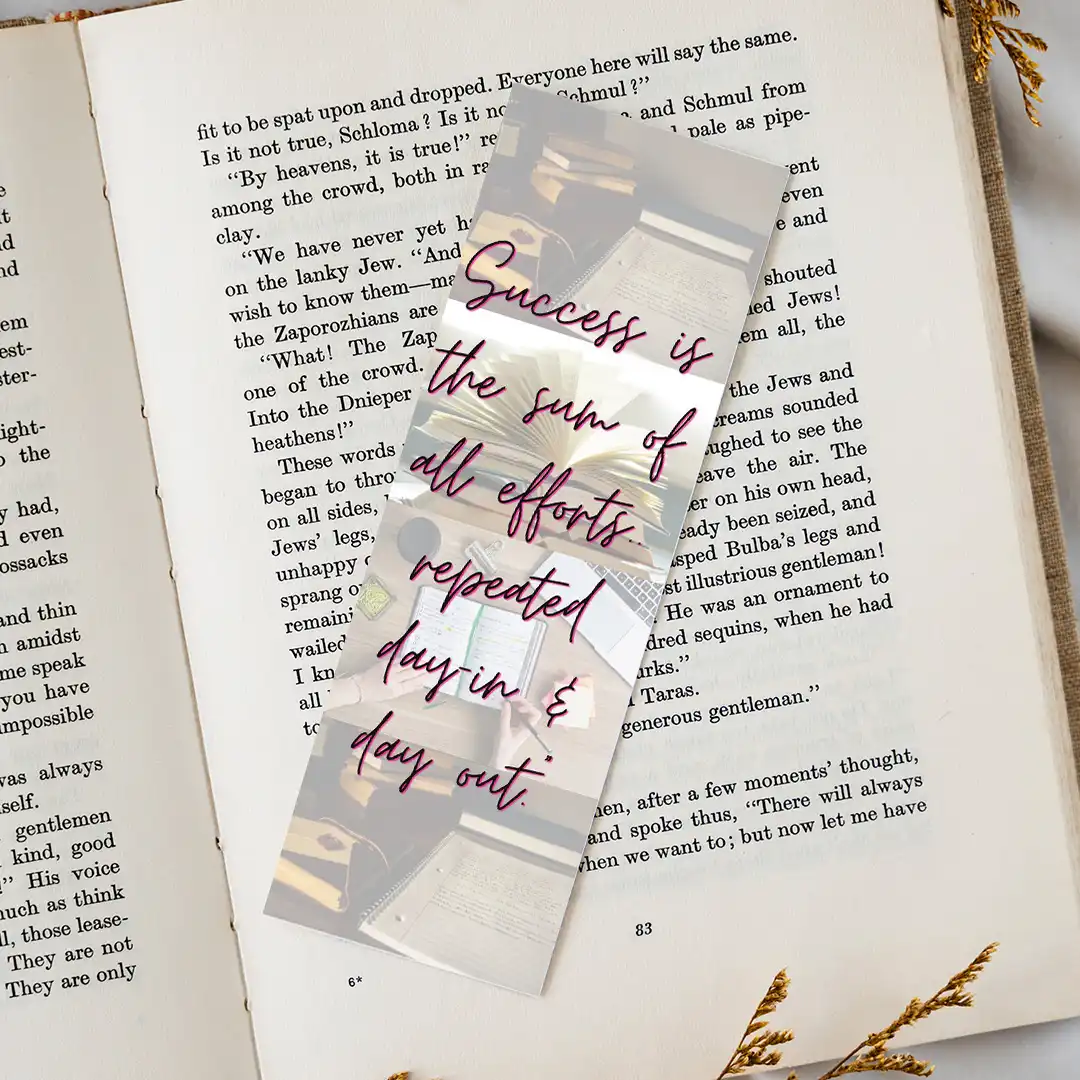 e
t
d
nd
em
est-
ster-
ight-
o the
y had,
d even
ossacks
and thin
n amidst
me speak
you have
impossible
was always
self.
gentlemen
kind, good
” His voice
much as think
ll, those lease-
They are not
They are only
fit to be spat upon and dropped. Everyone here will say the same.
Is it not true, Schloma? Is it no Schmul?”
“By heavens, it is true!” re and Schmul from
among the crowd, both in ra pale as pipe-
clay.
“We have never yet ha vent
on the lanky Jew. “And even
wish to know them—ma e and
the Zaporozhians are
“What! The Zap shouted
one of the crowd. ned Jews!
Into the Dnieper em all, the
heathens!”
These words the Jews and
began to thro creams sounded
on all sides, ughed to see the
Jews’ legs, eave the air. The
unhappy er on his own head,
sprang o eady been seized, and
remaini sped Bulba’s legs and
wailed st illustrious gentleman!
I kn He was an ornament to
all dred sequins, when he had
to rks.”
Taras.
generous gentleman.”
hen, after a few moments’ thought,
and spoke thus, “There will always
when we want to; but now let me have
6*
83
Success is
the sum of
all efforts...
repeated
day-in &
day out."